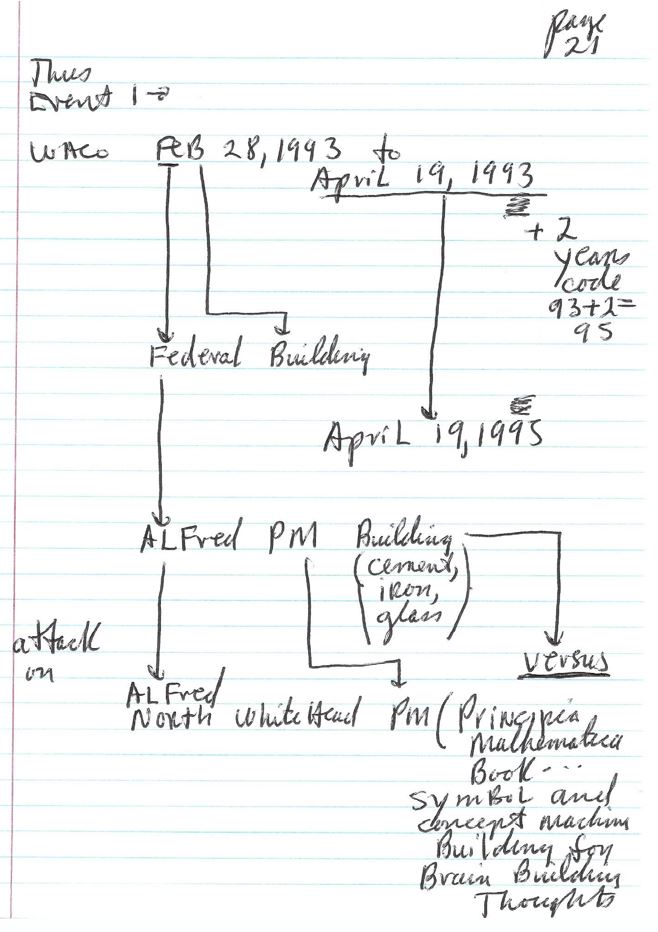 page
21
Thus
Event 1→
WACO FEB 28, 1993 to
April 19, 1993
+ 2
years
code
93+2=
95
Federal Building
April 19, 1995
ALFred PM Building
(cement,
iron,
glass)
attack
on
versus
ALFred
North WhiteHead PM (Principia
Mathematica
Book ---
Symbol and
concept machine
Building for
Brain Building
Thoughts